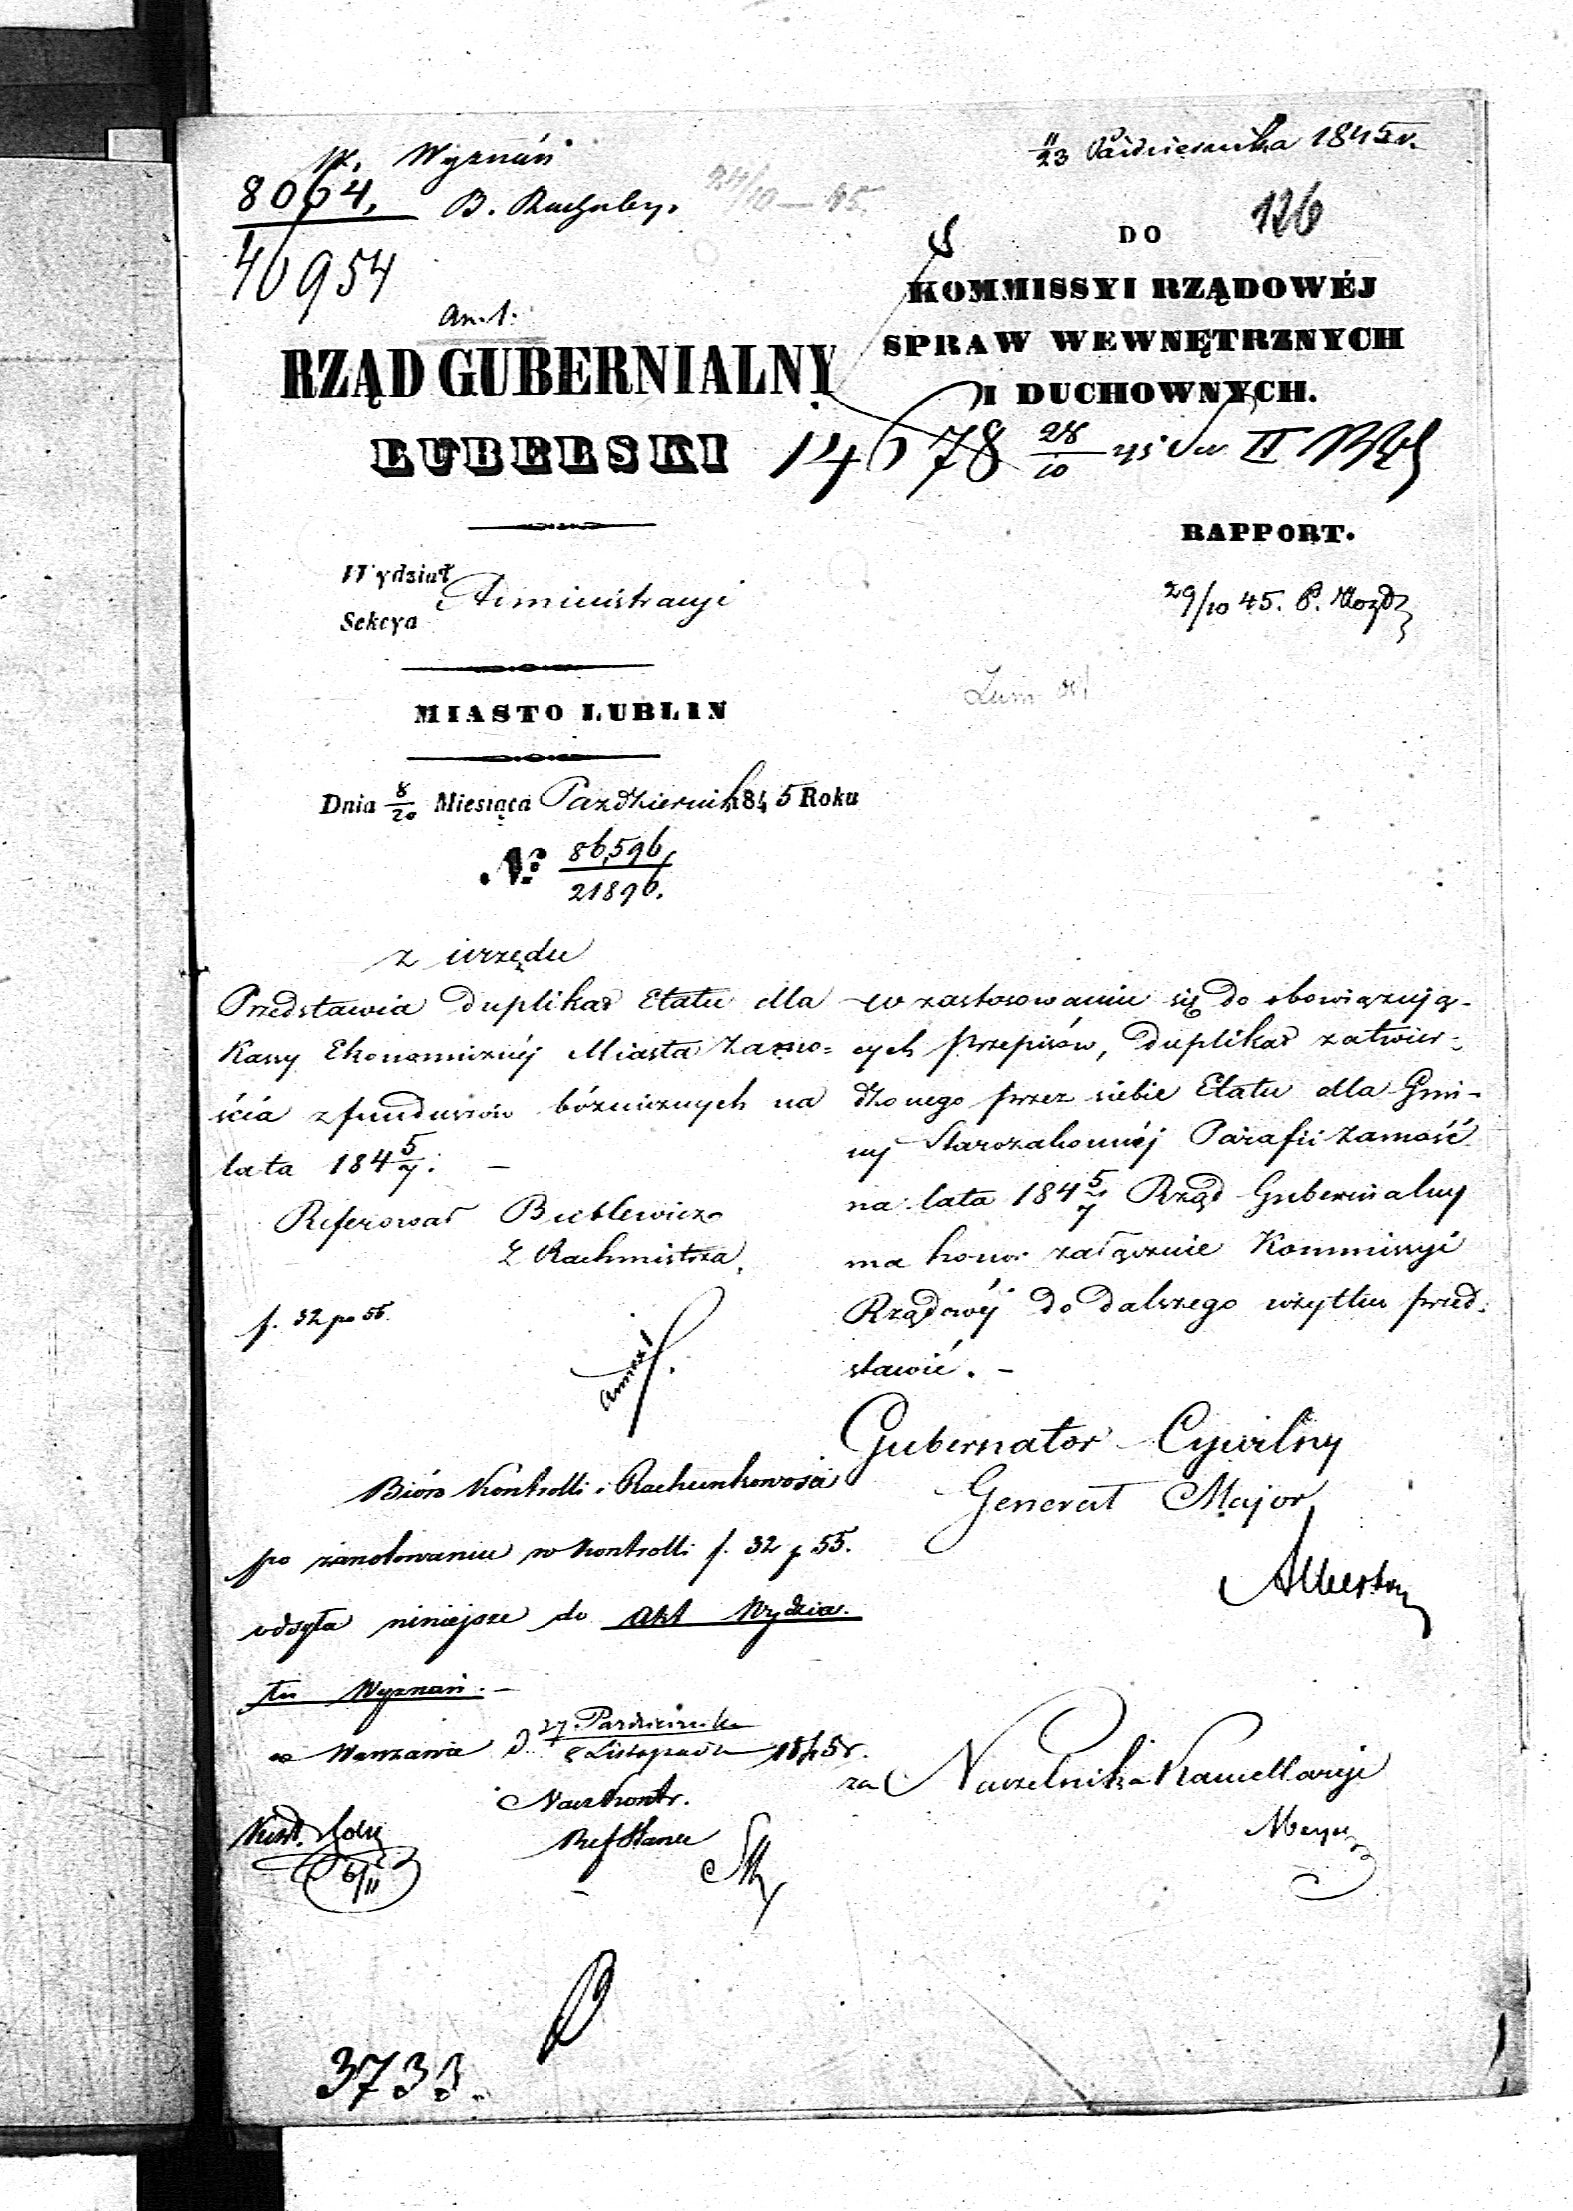 W. Wyznań
8064,
B. Rachuby.
24/10 — 45.
40954
an. 1.
RZĄD GUBERNIALNY
LUBELSKI
Wydział
Administracyi
Sekcya
MIASTO LUBLIN
Dnia 8/20 Miesiąca Październik 1845 Roku
№ 86,596/21896.
z urzędu
Przedstawia duplikat Etatu dla
Kassy Ekonomicznéj Miasta Zamo-
ścia z funduszów bóżniczych na
lata 184 5/7. —
Referował
Z Rachmistrza.
f. 32 po 55.
Annex 1
Bióro Kontrolli i Rachunkowości
po zanotowaniu w kontrolli f. 32 p 55.
odsyła niniejsze do Akt Wydzia-
łu Wyznań. —
w Warszawie d. 27. Październka/8 Listopada 1845 r.
Nacz Kontr.
6/11
3733.
11/23 Października 1845 r.
126
DO
KOMMISSYI RZĄDOWÉJ
SPRAW WEWNĘTRZNYCH
I DUCHOWNYCH.
14678 28/10 45 II
RAPPORT.
29/10 45. P.
W zastosowaniu się do obowiązują-
cych przepisów, duplikat zatwier-
dzonego przez siebie Etatu dla Gmi-
ny Starozakonnéj Parafii Zamość
na lata 184 5/7 Rząd Gubernialny
ma honor załącznie Kommissyi
Rządowéj do dalszego użytku przed-
stawić. —
Gubernator Cywilny
Generał Major
Albertow
za Naczelnika Kancellaryi
Meyer